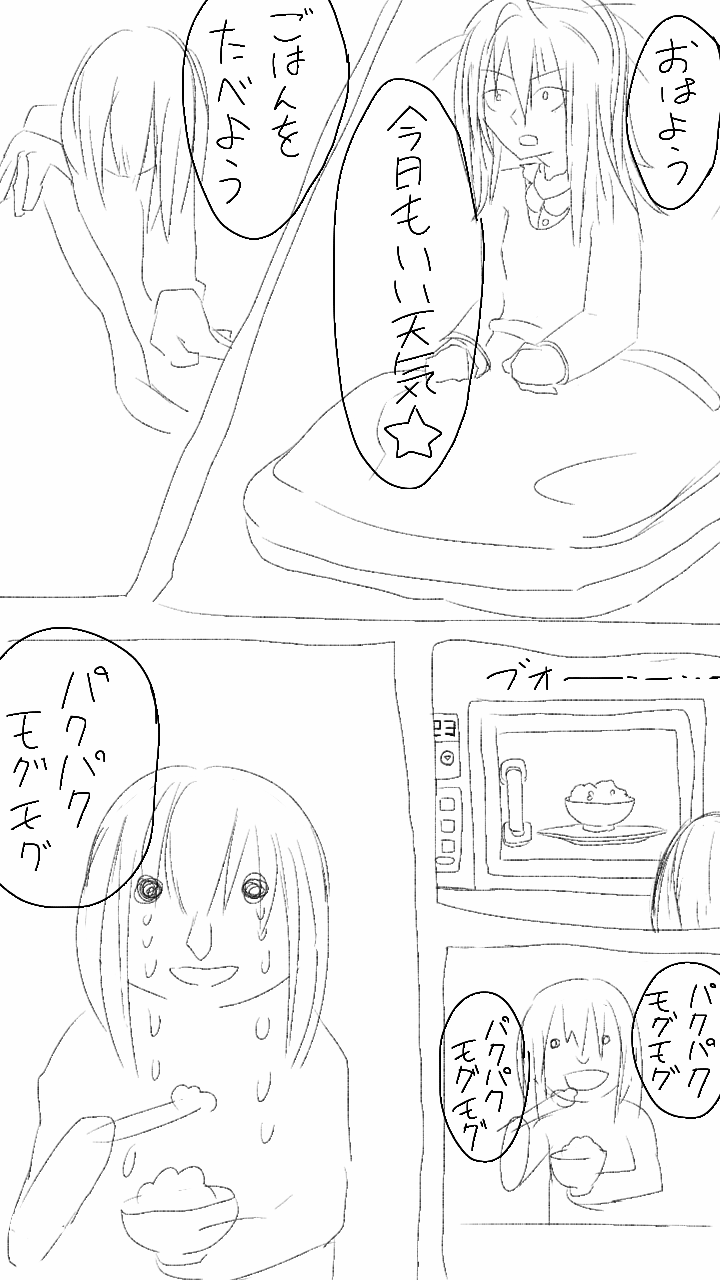 おはよう
今日もいい天気☆
ごはんを
たべよう
ブオー
パクパク
モグモグ
パクパク
モグモグ
パクパク
モグモグ